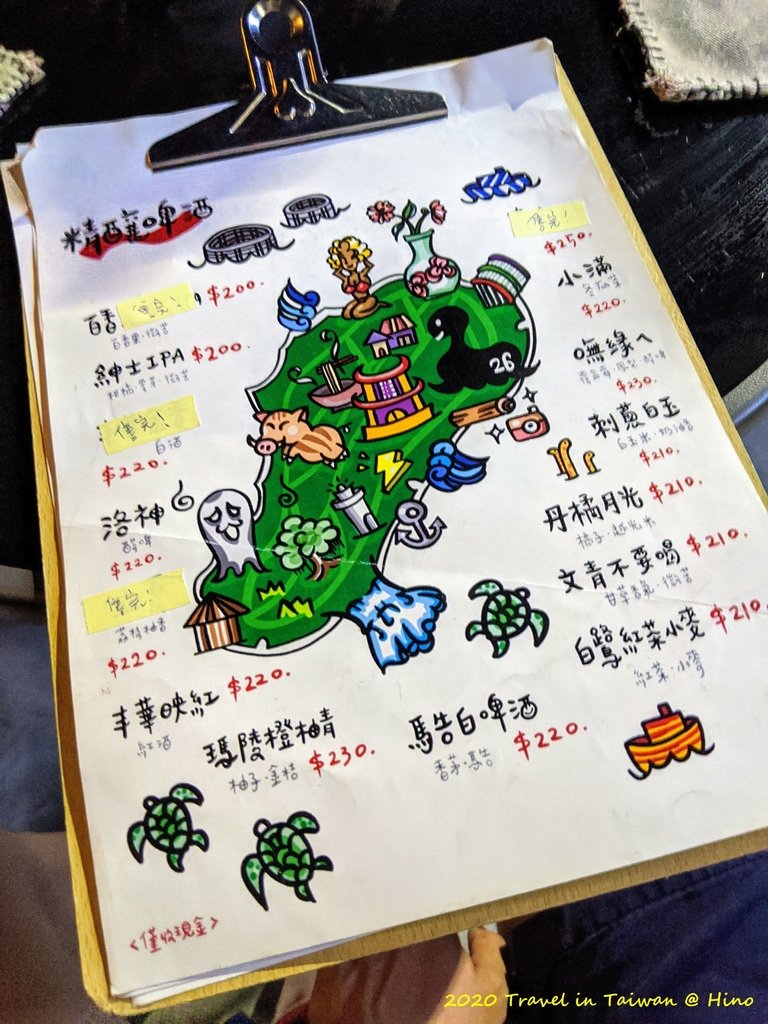 精釀啤酒
百香
售完!
$200.
百香果·微苦
紳士IPA $200.
柑橘·草本·微苦
售完!
白酒
$220.
洛神
酸啤
$220.
售完!
荔枝柚香
$220.
丰華映紅 $220.
紅酒
瑪陵橙柚青
柚子·金桔 $230.
馬告白啤酒
香茅·馬告 $220.
售完!
$250.
小滿
冬瓜茶
$220.
嘸緣ㄟ
$230.
刺蔥白玉
白玉米·奶油香
$210.
丹橘月光 $210.
橘子·越光米
文青不要喝 $210.
甘草香氣·微苦
白鷺紅茶小麥 $210.
紅茶·小麥
26
<僅收現金>
2020 Travel in Taiwan @ Hino